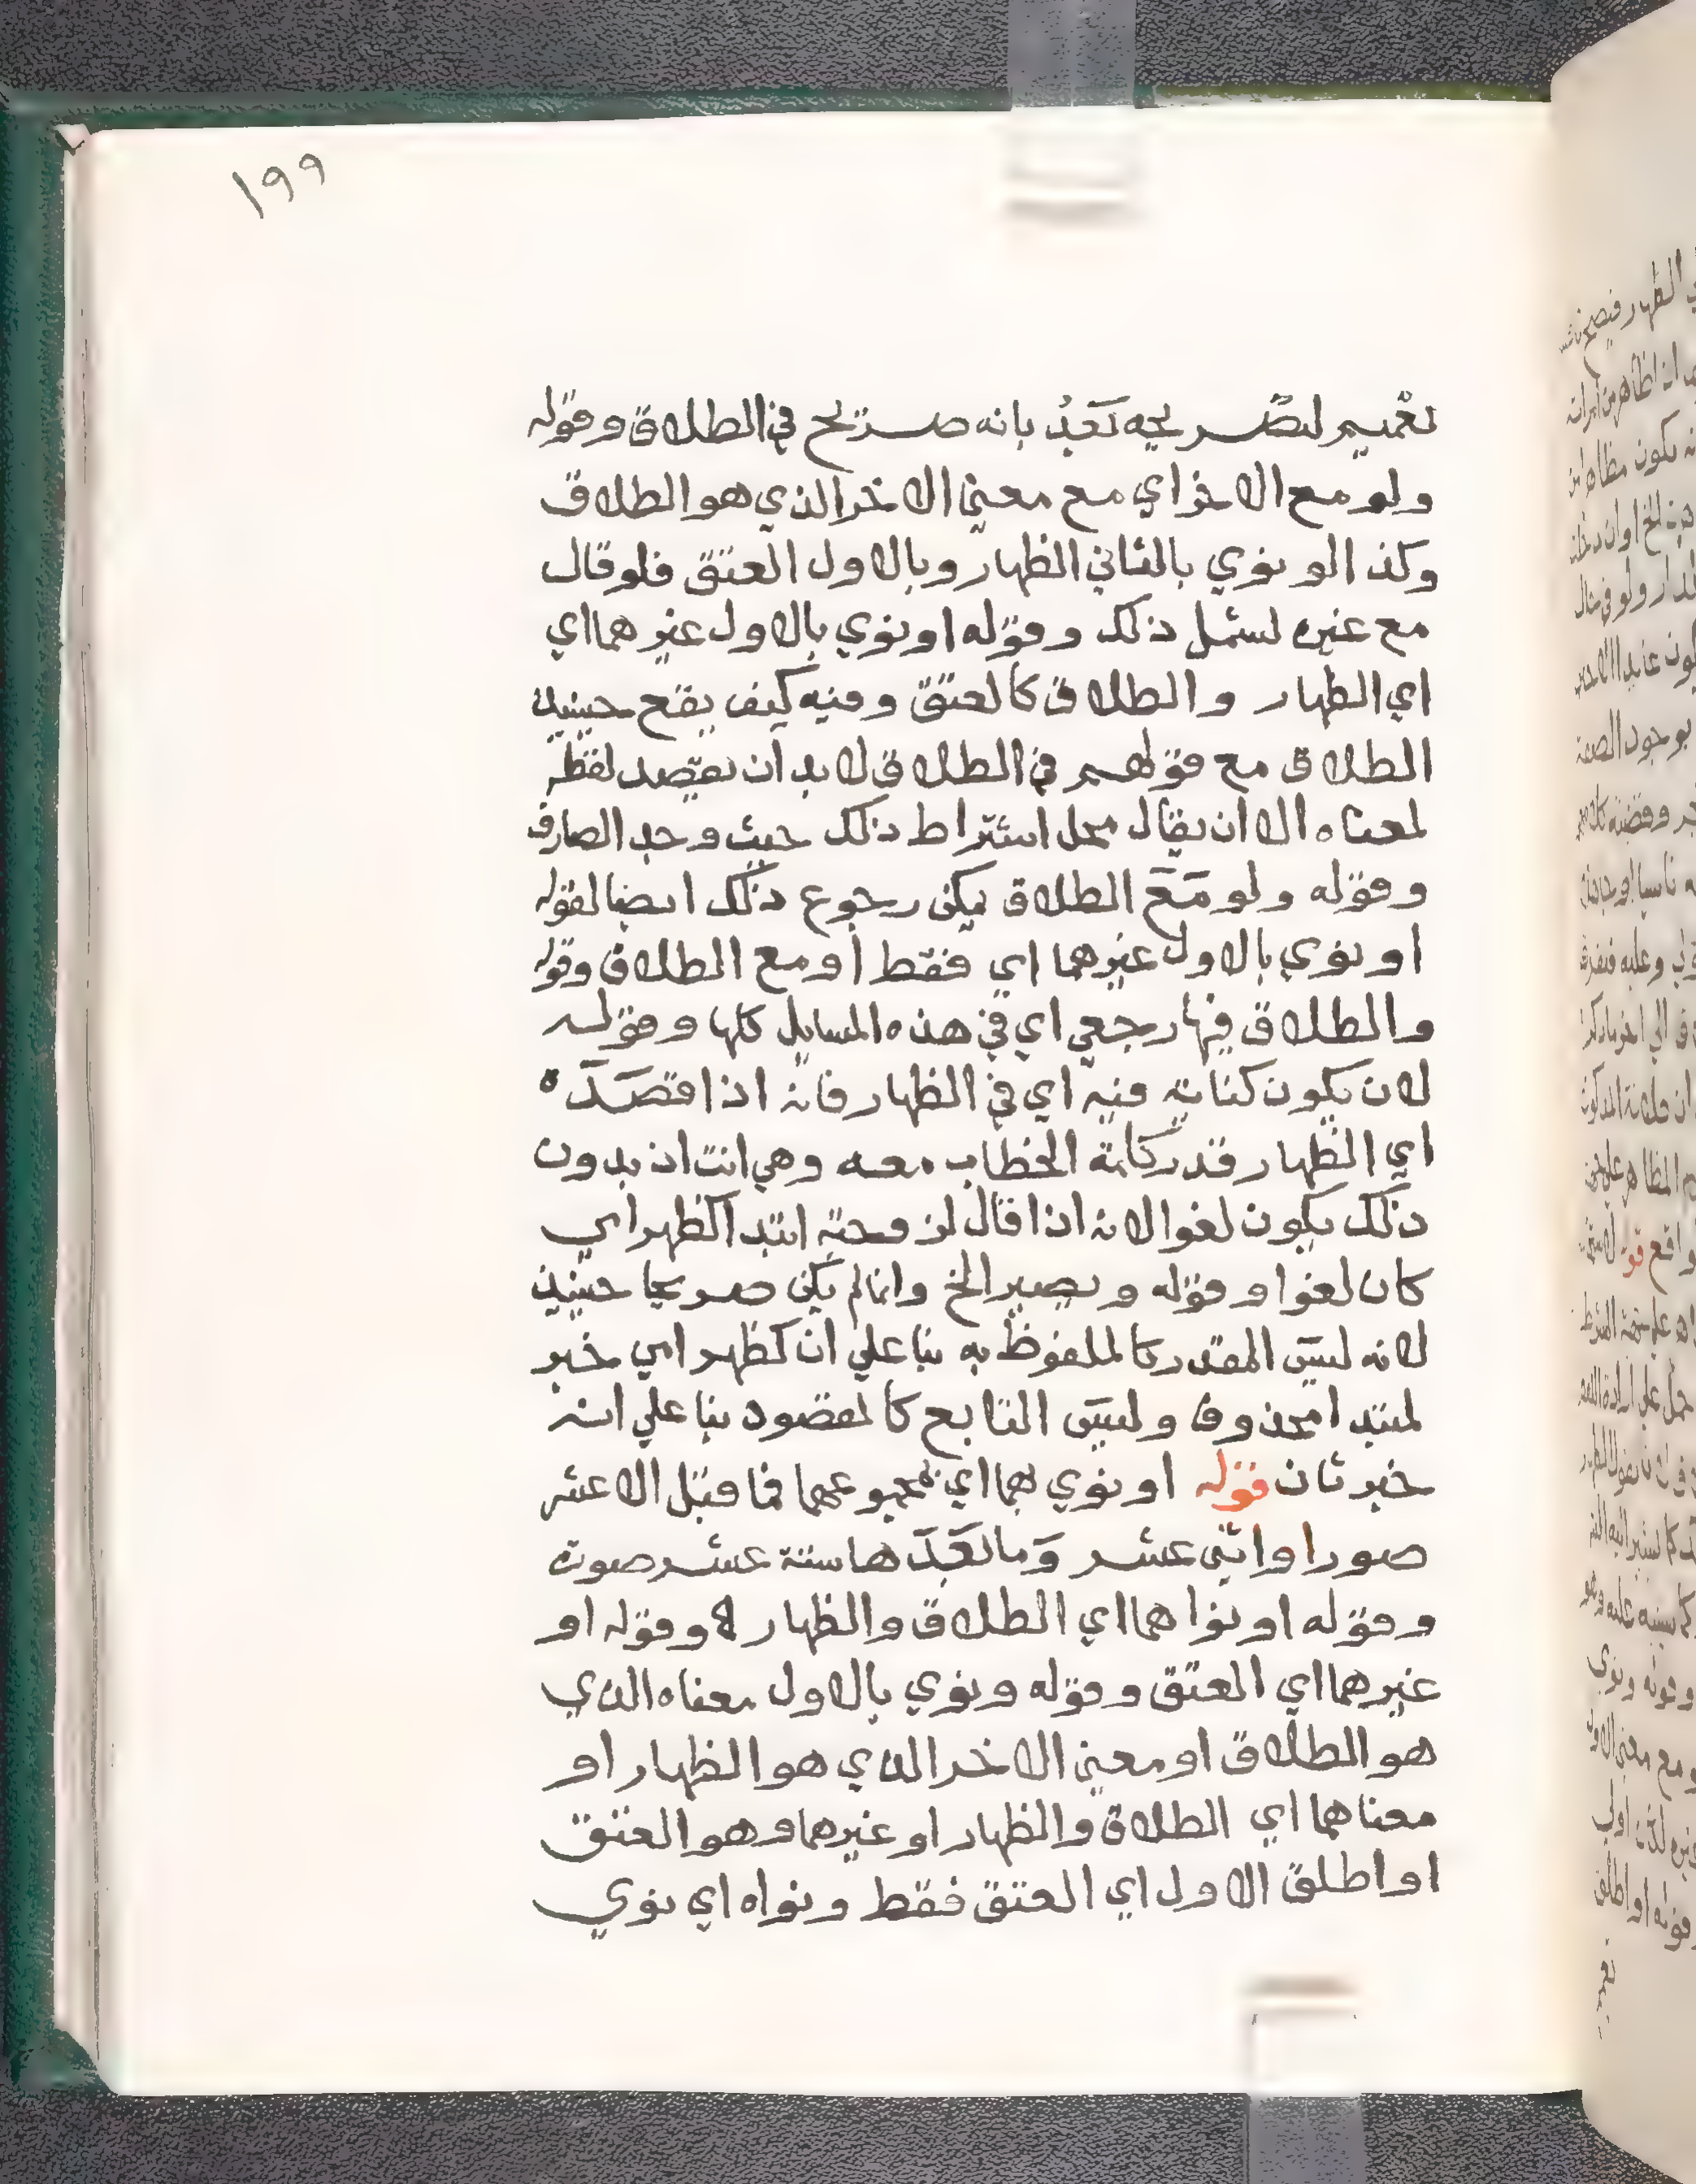 ١٩٩
تعميم لتصريحه بعد بانه صريح في الطلاق وقوله
ولو مع الاخر اي مع معني الاخر الذي هو الطلاق
وكذا لو نوي بالثاني الظهار وبالاول العتق فلو قال
مع غيره لشمل ذلك وقوله او نوي بالاول غيرهما اي
اي الظهار والطلاق كالعتق وفيه كيف يقع حينيذ
الطلاق مع قولهم في الطلاق لا بد ان يقصد لفظه
لمعناه الا ان يقال محل اشتراط ذلك حيث وجد الصارف
وقوله ولو مع الطلاق يمكن رجوع ذلك ايضا لقوله
او نوي بالاول غيرهما اي فقط او مع الطلاق وقوله
والطلاق فيها رجعي اي في هذه المسايل كلها وقوله
لان يكون كناية فيه اي في الظهار فانه اذا قصده
اي الظهار قدر كلمة الخطاب معه وهي انت اذ بدون
ذلك يكون لغوا لانه اذا قال لزوجته ابتدا كظهر امي
كان لغوا وقوله ويصير الخ وانما لم يكن صريحا حينيذ
لانه ليس المقدر كالملفوظ به بنا علي ان كظهر امي خبر
لمبتدا محذوف وليس التابع كالمقصود بنا علي انه
خبر ثان قوله او نوي بهما اي بمجموعهما فما قبل الا عشر
صور او اثني عشر وما بعدها ستة عشر صورة
وقوله او نواهما اي الطلاق والظهار وقوله او
غيرهما اي العتق وقوله ونوي بالاول معناه الذي
هو الطلاق او معني الاخر الذي هو الظهار او
معناهما اي الطلاق والظهار او غيرهما وهو العتق
او اطلق الاول اي العتق فقط ونواه اي نوي